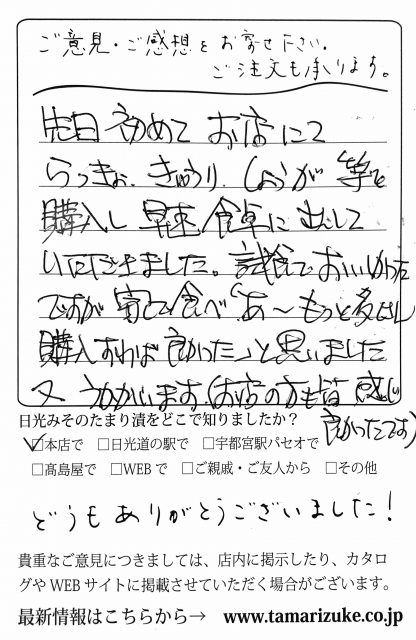 ご意見・ご感想をお寄せ下さい。
ご注文も承ります。
先日 初めて お店にて
らっきょ、きゅうり、しょうが 等を
購入し 早速 食卓に 出して
いただきました。試食で おいしかった
ですが 家で 食べ「あ〜 もっと多だし
購入すれば 良かった」と思いました
又 うかがいます。(お店の方も皆 感じ
良かったです)
日光みそのたまり漬をどこで知りましたか?
☑本店で □日光道の駅で □宇都宮駅パセオで
□髙島屋で □WEBで □ご親戚・ご友人から □その他
どうもありがとうございました!
貴重なご意見につきましては、店内に掲示したり、カタロ
グやWEBサイトに掲載させていただく場合がございます。
最新情報はこちらから→ www.tamarizuke.co.jp